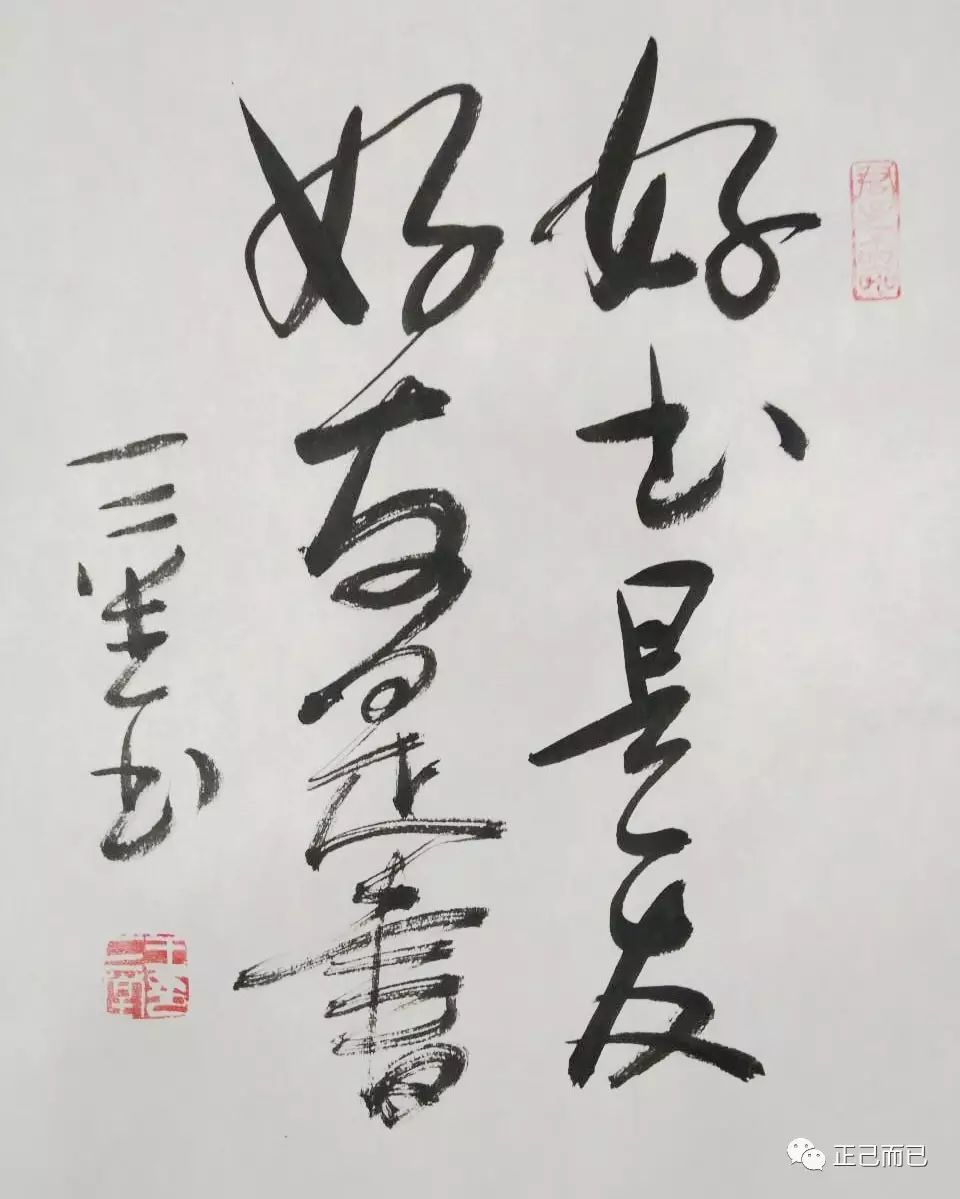 好书是友
好友是书
三笑书
正己而已